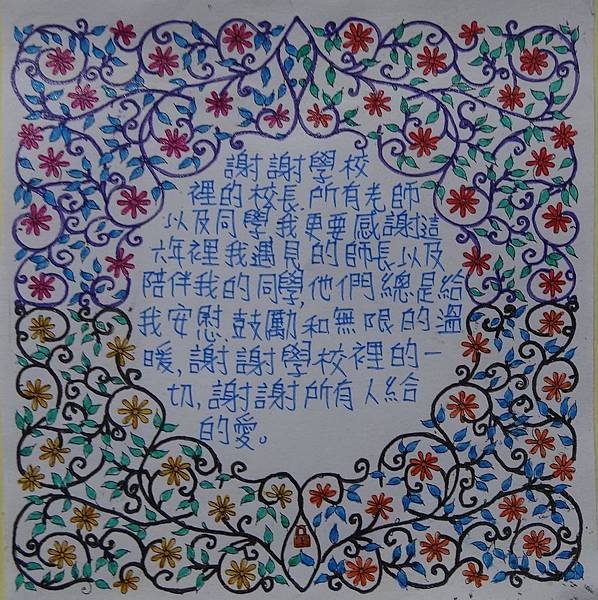 謝謝學校
裡的校長、所有老師
以及同學,我更要感謝這
六年裡我遇見的師長,以及
陪伴我的同學,他們總是給
我安慰、鼓勵和無限的溫
暖,謝謝學校裡的一
切,謝謝所有人給
的愛。